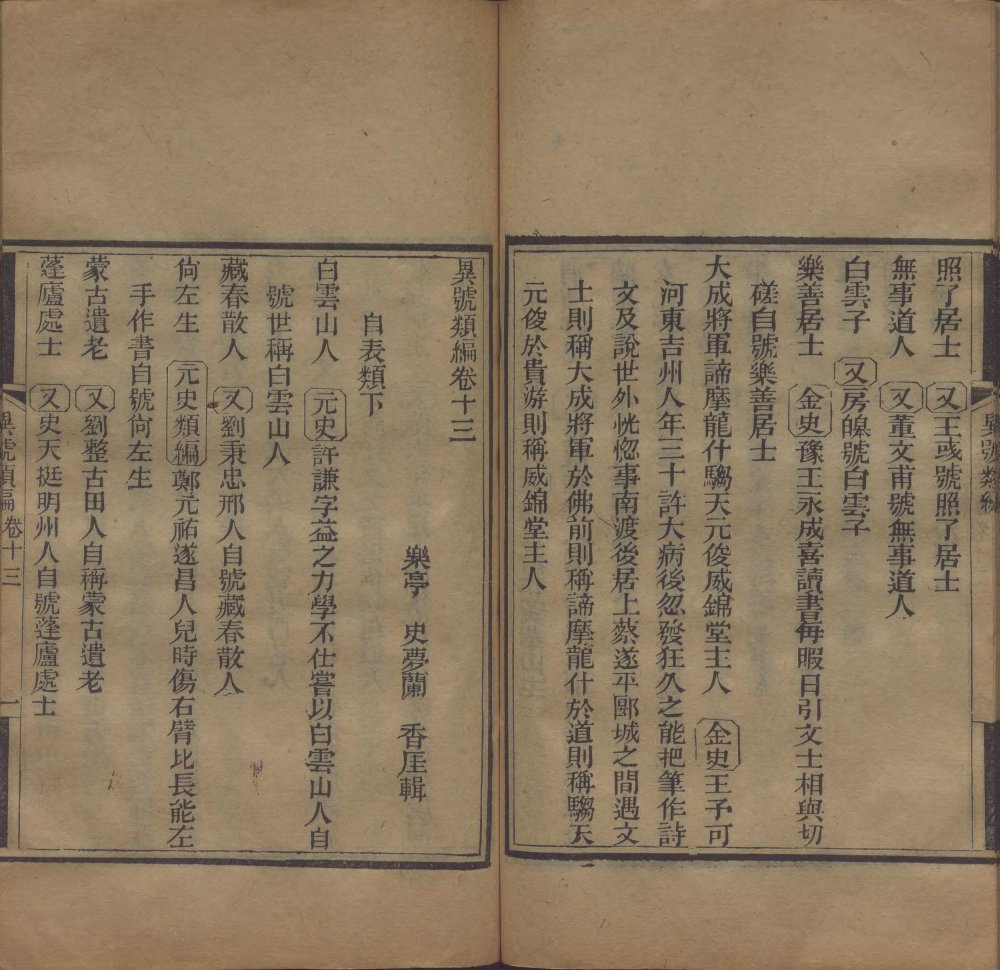 照了居士　又王彧號照了居士
無事道人　又董文甫號無事道人
白雲子　又房皡號白雲子
樂善居士　金史豫王永成喜讀書每暇日引文士相與切
磋自號樂善居士
大成將軍諦摩龍什騶天元俊威錦堂主人　金史王予可
河東吉州人年三十許大病後忽發狂久之能把筆作詩
文及說世外恍惚事南渡後居上蔡遂平郾城之間遇文
士則稱大成將軍於佛前則稱諦摩龍什於道則稱騶天
元俊於貴游則稱威錦堂主人
異號類編卷十三
樂亭　史夢蘭　香厓輯
自表類下
白雲山人　元史許謙字益之力學不仕嘗以白雲山人自
號世稱白雲山人
藏春散人　又劉秉忠邢人自號藏春散人
尙左生　元史類編鄭元祐遂昌人兒時傷右臂比長能左
手作書自號尙左生
蒙古遺老　又劉整古田人自稱蒙古遺老
蓬廬處士　又史天挺明州人自號蓬廬處士
異號類編卷十三　一